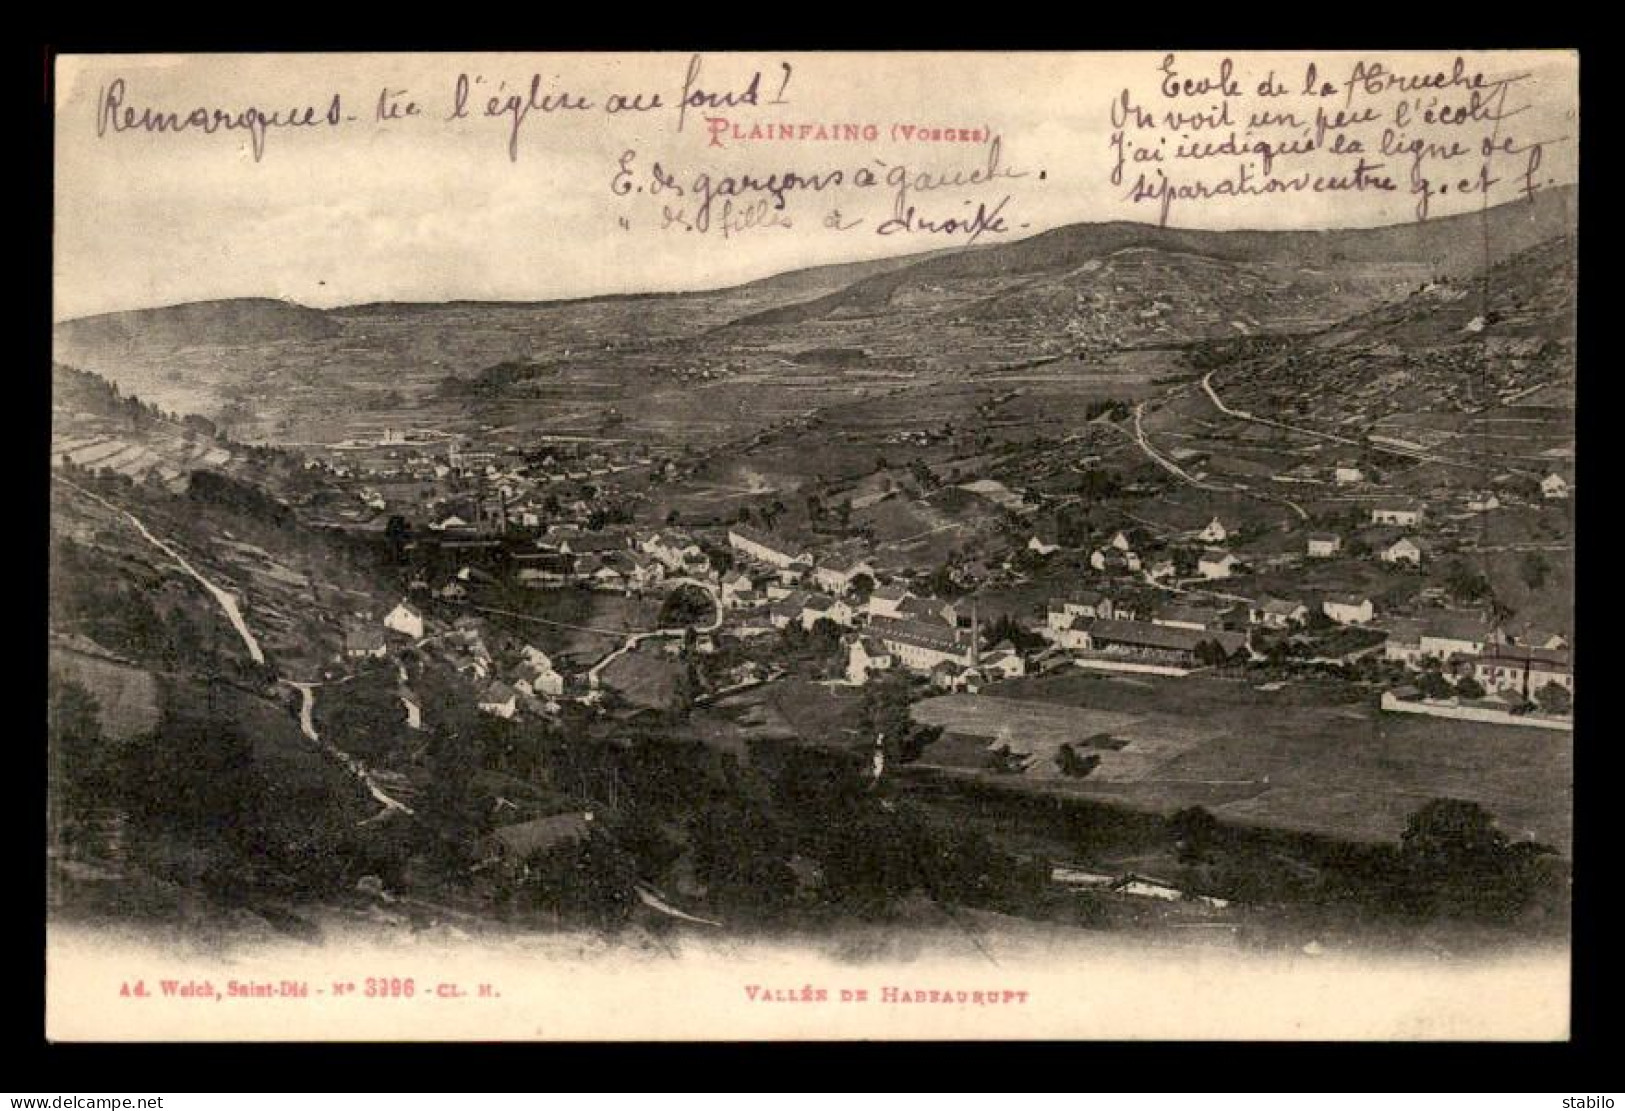 Remarques-tu l'église au fond?
PLAINFAING (VOSGES)
E. des garçons à gauche.
" des filles à droite.
Ecole de la Truche
On voit un peu l'école
J'ai indiqué la ligne de
séparation entre g. et f.
Ad. Weick, Saint-Dié - N° 3996 - CL. M.
VALLÉE DE HABEAURUPT
stabilo
delcampe.net